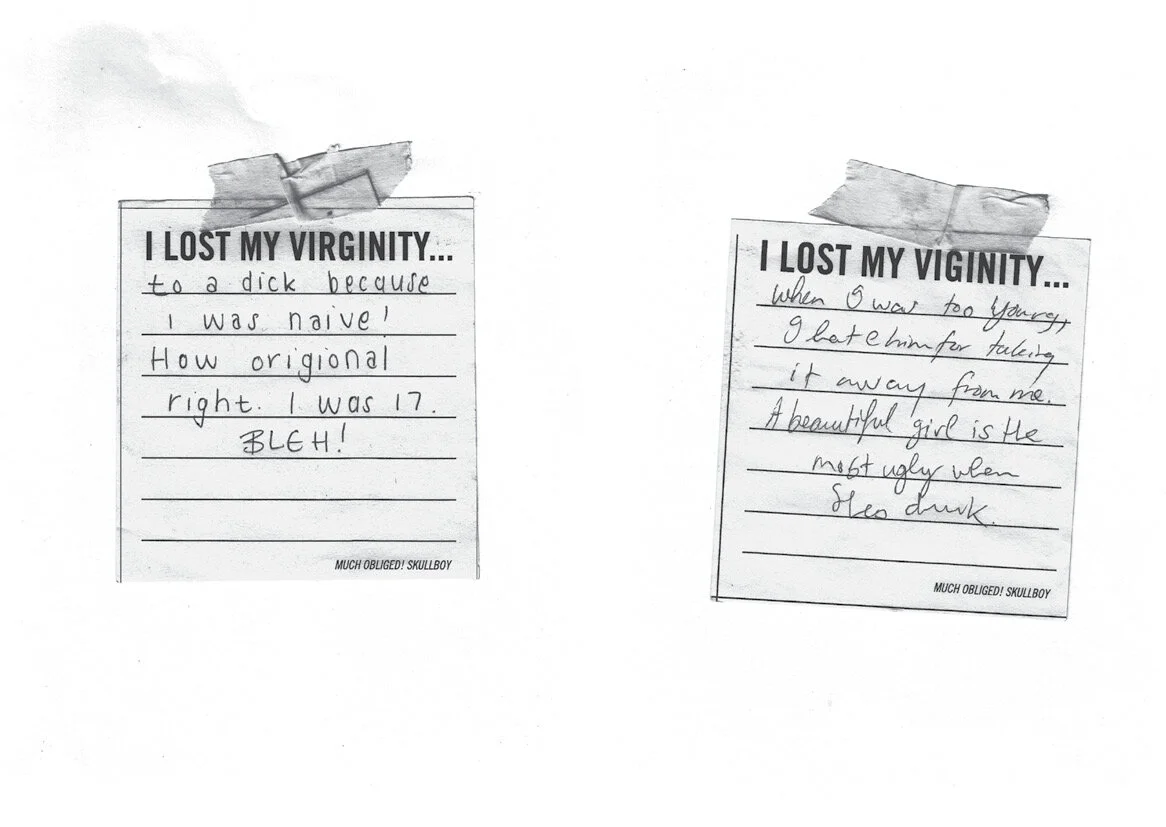 I LOST MY VIRGINITY...
to a dick because
I was naive!
How origional
right. I was 17.
BLEH!
MUCH OBLIGED! SKULLBOY
I LOST MY VIGINITY...
When I was too young,
I hate him for taking
it away from me.
A beautiful girl is the
most ugly when
Shes drunk.
MUCH OBLIGED! SKULLBOY